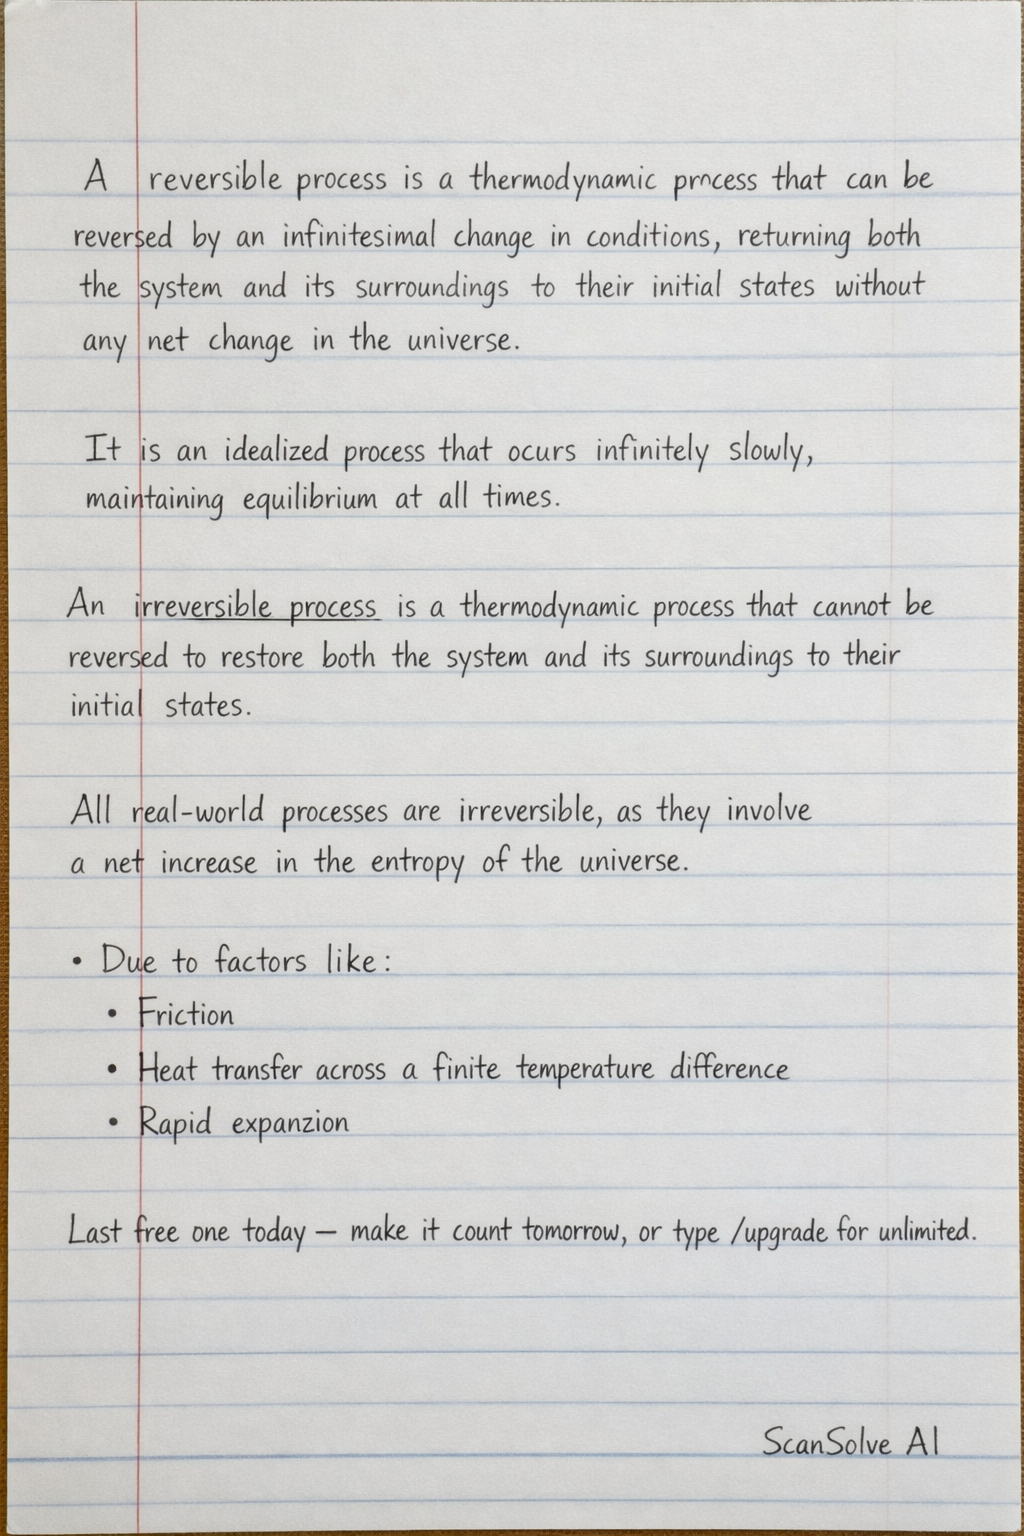 A reversible process is a thermodynamic process that can be
reversed by an infinitesimal change in conditions, returning both
the system and its surroundings to their initial states without
any net change in the universe.
It is an idealized process that ocurs infinitely slowly,
maintaining equilibrium at all times.
An irreversible process is a thermodynamic process that cannot be
reversed to restore both the system and its surroundings to their
initial states.
All real-world processes are irreversible, as they involve
a net increase in the entropy of the universe.
• Due to factors like:
• Friction
• Heat transfer across a finite temperature difference
• Rapid expanzion
Last free one today — make it count tomorrow, or type /upgrade for unlimited.
ScanSolve AI